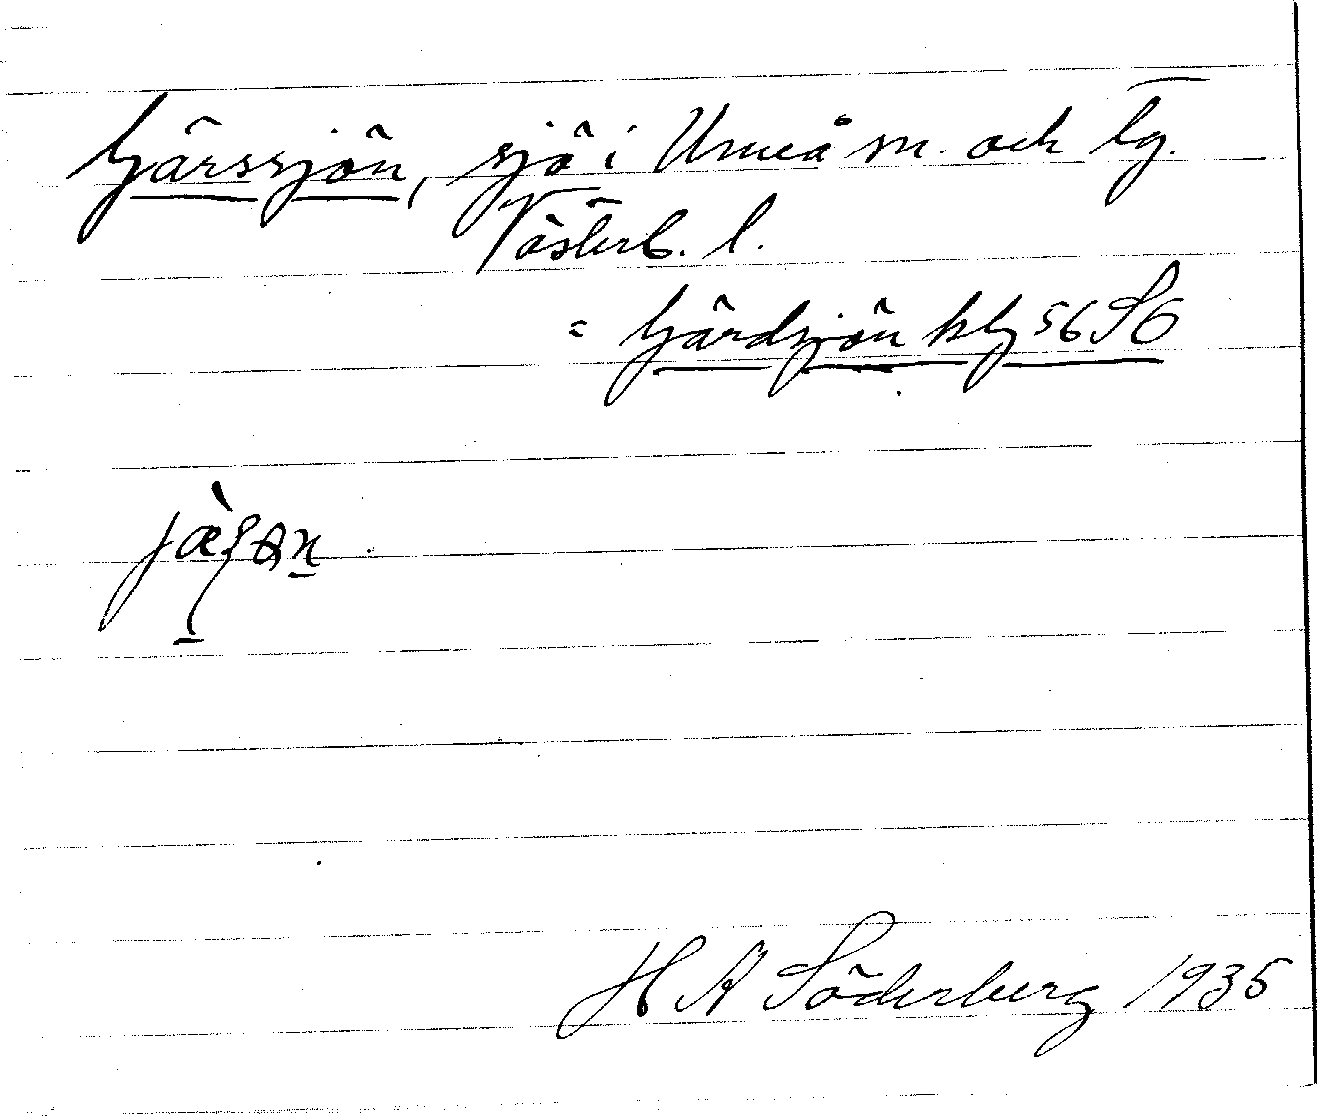 Gärssjön, sjö i Umeå sn. och tg.
Västerb. l.
= Gärdsjön kbl 56 S6
H A Söderberg 1935